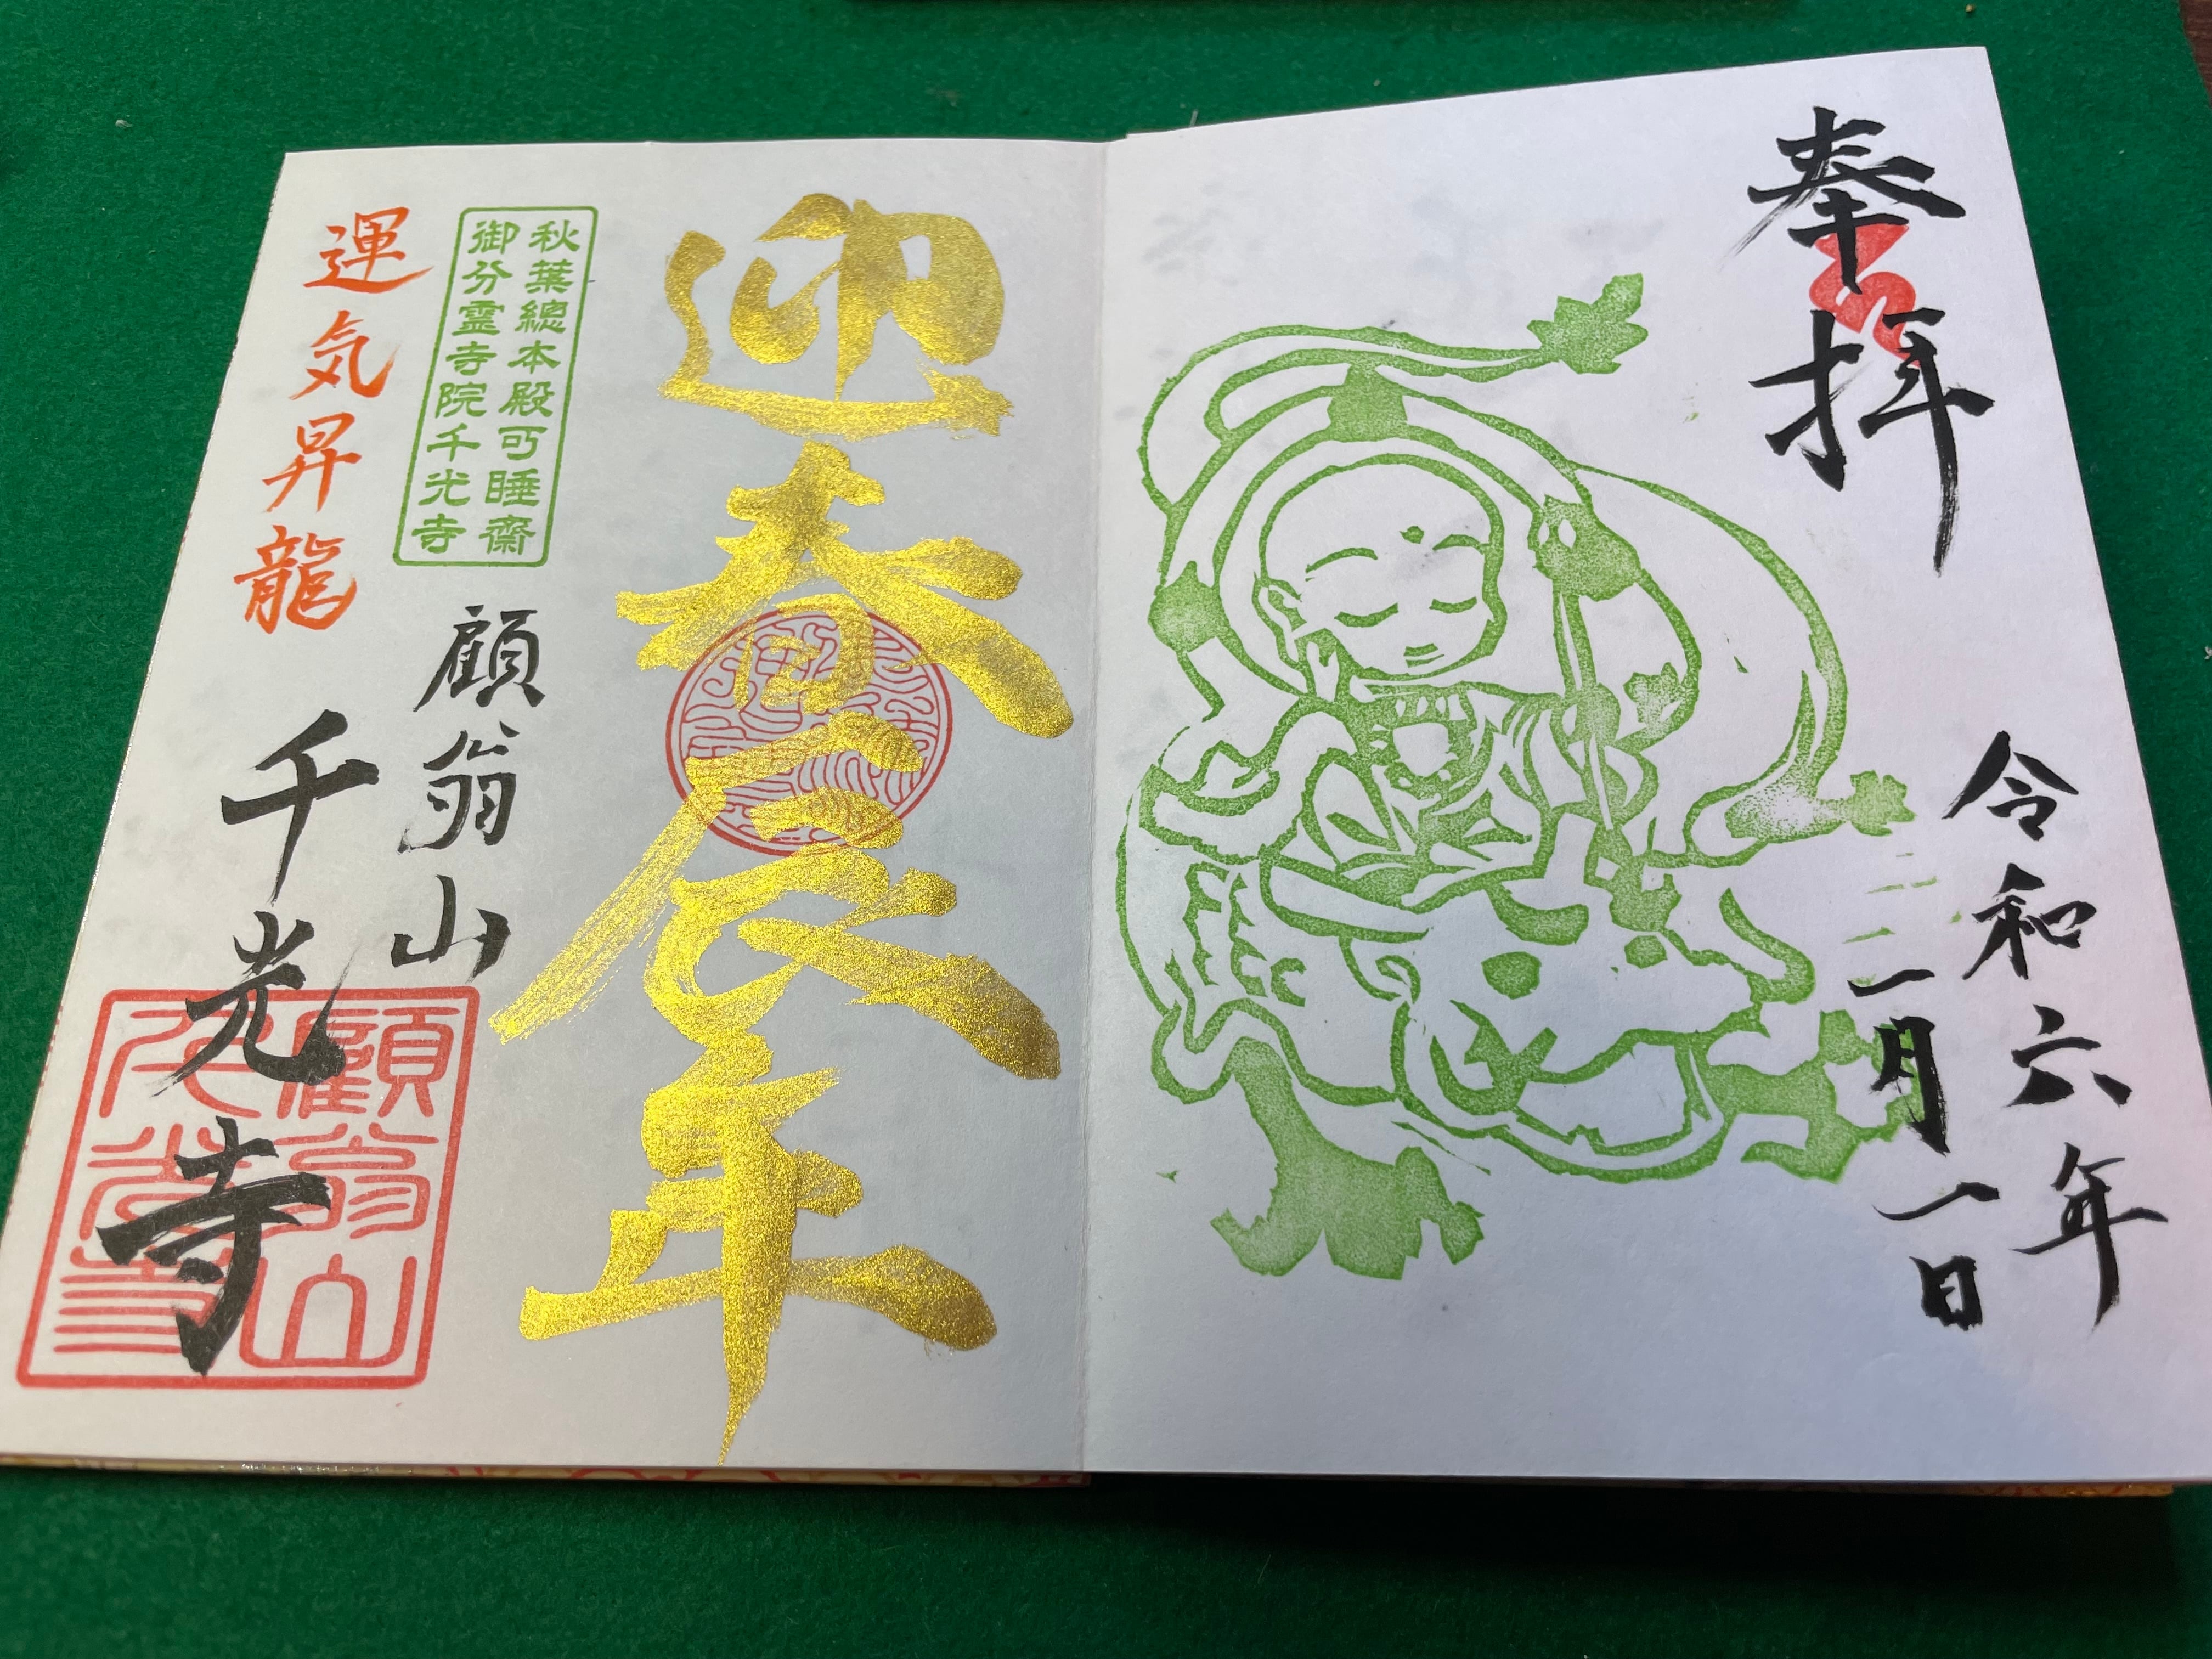 奉拝
令和六年
一月一日
迎春辰年
秋葉總本殿可睡齋
御分霊寺院千光寺
運気昇龍
顧翁山
千光寺
顧翁山
千光寺